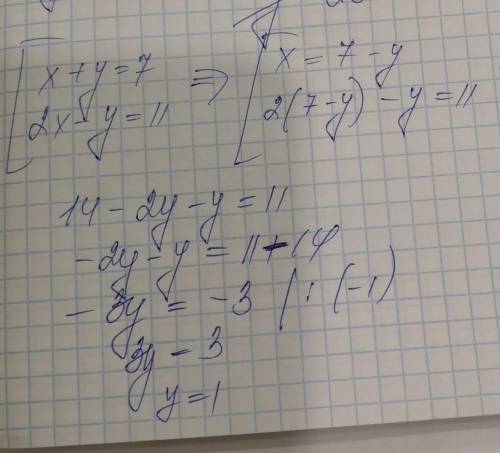 x + y = 7 ⇒ x = 7 - y
2x - y = 11 2(7-y) - y = 11
14 - 2y - y = 11
-2y - y = 11 - 14
- 3y = -3 | : (-1)
3y - 3
y = 1